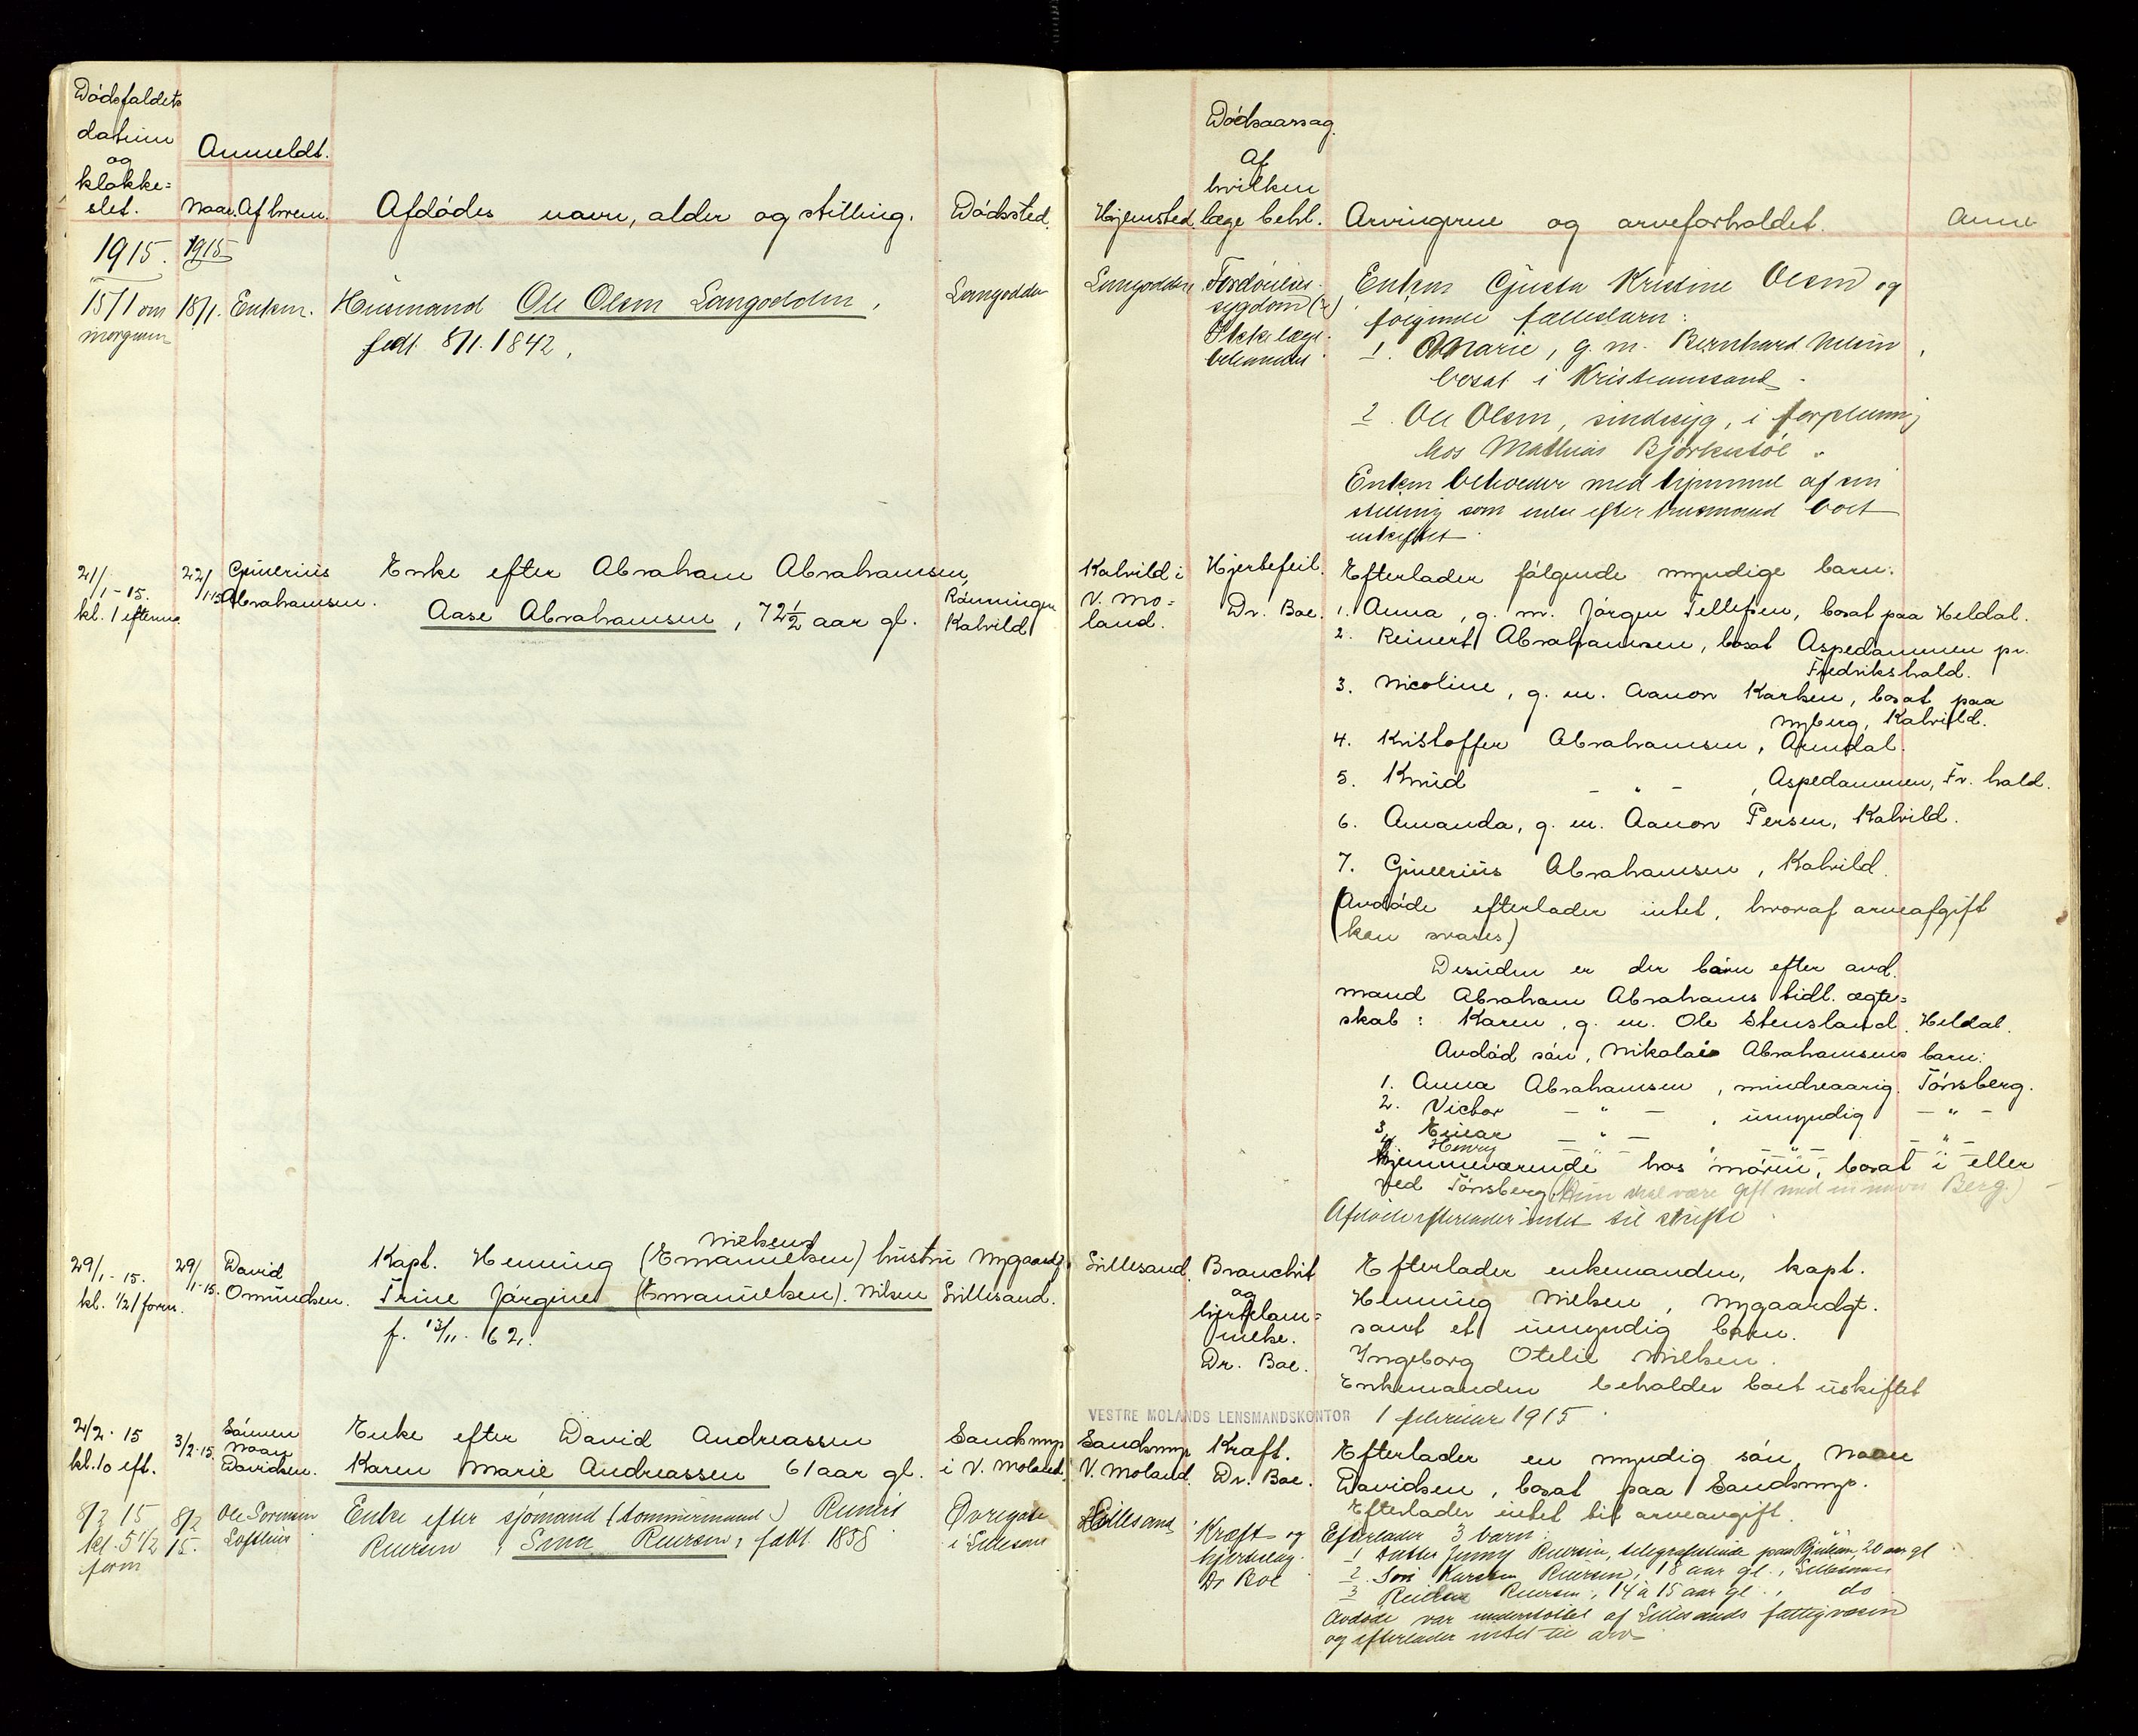 Dødsfaldets
datum
og
klokke=
slet.
Anmeldt.
Naar. Af hvem.
Afdødes navn, alder og stilling.
Dødssted.
Hjemsted.
Dødsaarsag.
Af
hvilken
læge behl.
Arvingerne og arveforholdet.
Anm
1915. 1915
15/1 om
morgenen
18/1. Enken.
Husmand Ole Olsen Langodden,
født 8/1. 1842,
Langodden
Langodden
Fordøielses
sygdom (?)
Ikke læge
behandlet
Enken Gusta Kristine Olsen og
følgende fællesbarn:
1. Marie, g. m. Bernhard
bosat i Kristianssand.
2. Ole Olsen, sindssyg, i forpleining
hos Mathias Bjørkestøl.
Enken beholder med hjemmel af sin
stilling som enke efter husmand boet
uskiftet.
21/1 - 15.
kl. 1 efterm.
22/1 15
Gunerius
Abrahamsen.
Enke efter Abraham Abrahamsen,
Aase Abrahamsen, 72 1/2 aar gl.
Rønningen
Kalvild
Kalvild i
V. Mo=
land.
Hjertefeil.
Dr. Boe.
Efterlader følgende myndige barn:
1. Anna, g. m. Jørgen Tellefsen, bosat paa Heldal.
2. Reinert Abrahamsen, bosat Aspedammen pr.
Fredrikshald.
3. Nicoline, g. m. Aanon Karlsen, bosat paa
Nyberg, Kalvild.
4. Kristoffer Abrahamsen, Arendal.
5. Knud - " - , Aspedammen, Fr. hald.
6. Amanda, g. m. Aanon Persen, Kalvild.
7. Gunerius Abrahamsen, Kalvild.
(Avdøde efterlader intet, hvoraf arveafgift
kan svares)
Desuden er der barn efter avd.
mand Abraham Abrahams tidl. ægte=
skab: Karen, g. m. Ole Stensland, Heldal.
Avdød søn, Nikolais Abrahamsens barn:
1. Anna Abrahamsen, mindreaarig. Tønsberg.
2. Victor - " - , umyndig - " -
3. Einar - " - , - " - - " -
4. Henry
hjemmeværende hos moren, bosat i eller
ved Tønsberg (Hun skal være gift med en navn Berg.)
Afdøde efterlader intet til skifte.
29/1 - 15.
kl. 1/2 1 form.
29/1 - 15.
David
Omundsen.
Nielsens
Kapt. Henning (Emanuelsen) hustru
Trine Jørgine (Emanuelsen). Nilsen
f. 13/11. 62.
Nygaardsgt.
Lillesand.
Lillesand.
Bronchit
og
hjertelam=
melse.
Dr. Boe.
Efterlader enkemanden, kapt.
Henning Nielsen, Nygaardgt.
samt et umyndig barn.
Ingeborg Otelie Nielsen.
Enkemanden beholder boet uskiftet
VESTRE MOLANDS LENSMANDSKONTOR
1 februar 1915.
2/2. 15
kl. 10 eft.
3/2. 15.
Sønnen
Noan
Davidsen.
Enke efter David Andreassen
Karen Marie Andreassen 61 aar gl.
Sandsmyr
i V. Moland.
Sandsmyr
V. Moland.
Kræft.
Dr. Boe.
Efterlader en myndig søn, Noan
Davidsen, bosat paa Sandsmyr.
Efterlader intet til arveavgift.
8/2 15
kl. 5 1/2
form
8/2
15.
Ole Sørensen
Enke efter sjømand (tømmermand)
Reiersen, Sina Reiersen, født 1858
Øvregate
i Lillesand
Lillesand
Kræft og
Dr Boe
Efterlader 3 barn:
1 datter Jenny Reiersen, telegrafistinde paa 20 aar gl
2. Søn Karsten Reiersen, 18 aar gl., Lillesand
3 Reidar Reiersen, 14 à 15 aar gl., do
Avdøde var understøttet af Lillesands fattigvæsen
og efterlader intet til arv